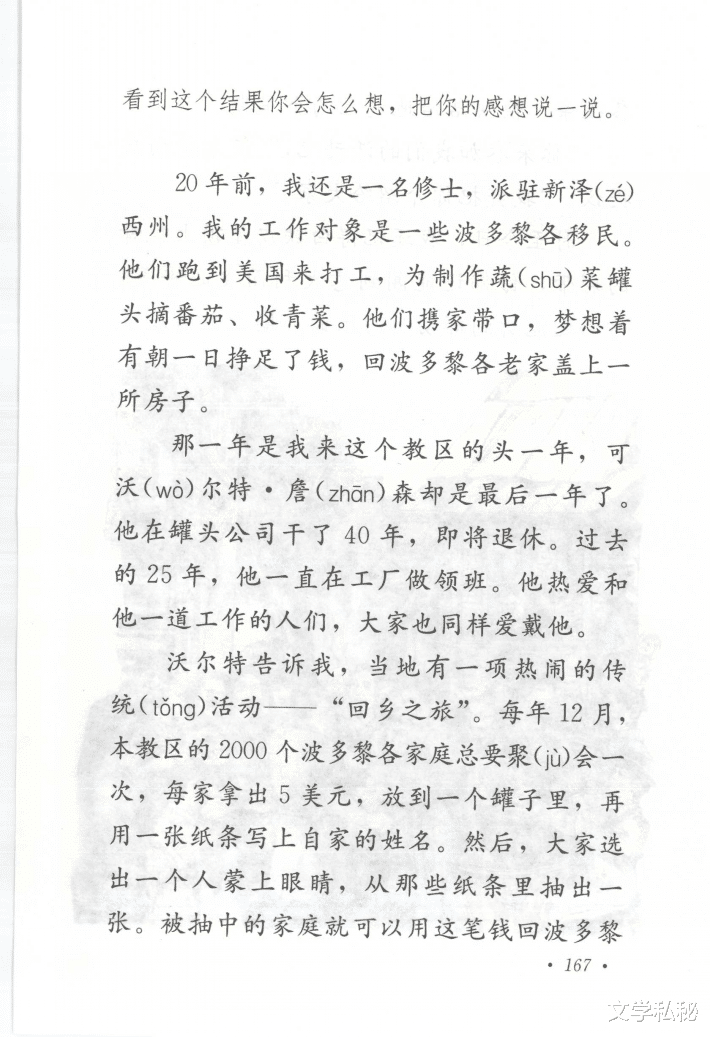 看到这个结果你会怎么想，把你的感想说一说。
20 年前，我还是一名修士，派驻新泽(zé)
西州。我的工作对象是一些波多黎各移民。
他们跑到美国来打工，为制作蔬(shū)菜罐
头摘番茄、收青菜。他们携家带口，梦想着
有朝一日挣足了钱，回波多黎各老家盖上一
所房子。
那一年是我来这个教区的头一年，可
沃(wò)尔特·詹(zhān)森却是最后一年了。
他在罐头公司干了 40 年，即将退休。过去
的 25 年，他一直在工厂做领班。他热爱和
他一道工作的人们，大家也同样爱戴他。
沃尔特告诉我，当地有一项热闹的传
统(tǒng)活动——“回乡之旅”。每年 12 月，
本教区的 2000 个波多黎各家庭总要聚(jù)会一
次，每家拿出 5 美元，放到一个罐子里，再
用一张纸条写上自家的姓名。然后，大家选
出一个人蒙上眼睛，从那些纸条里抽出一
张。被抽中的家庭就可以用这笔钱回波多黎
·167·
文学私秘